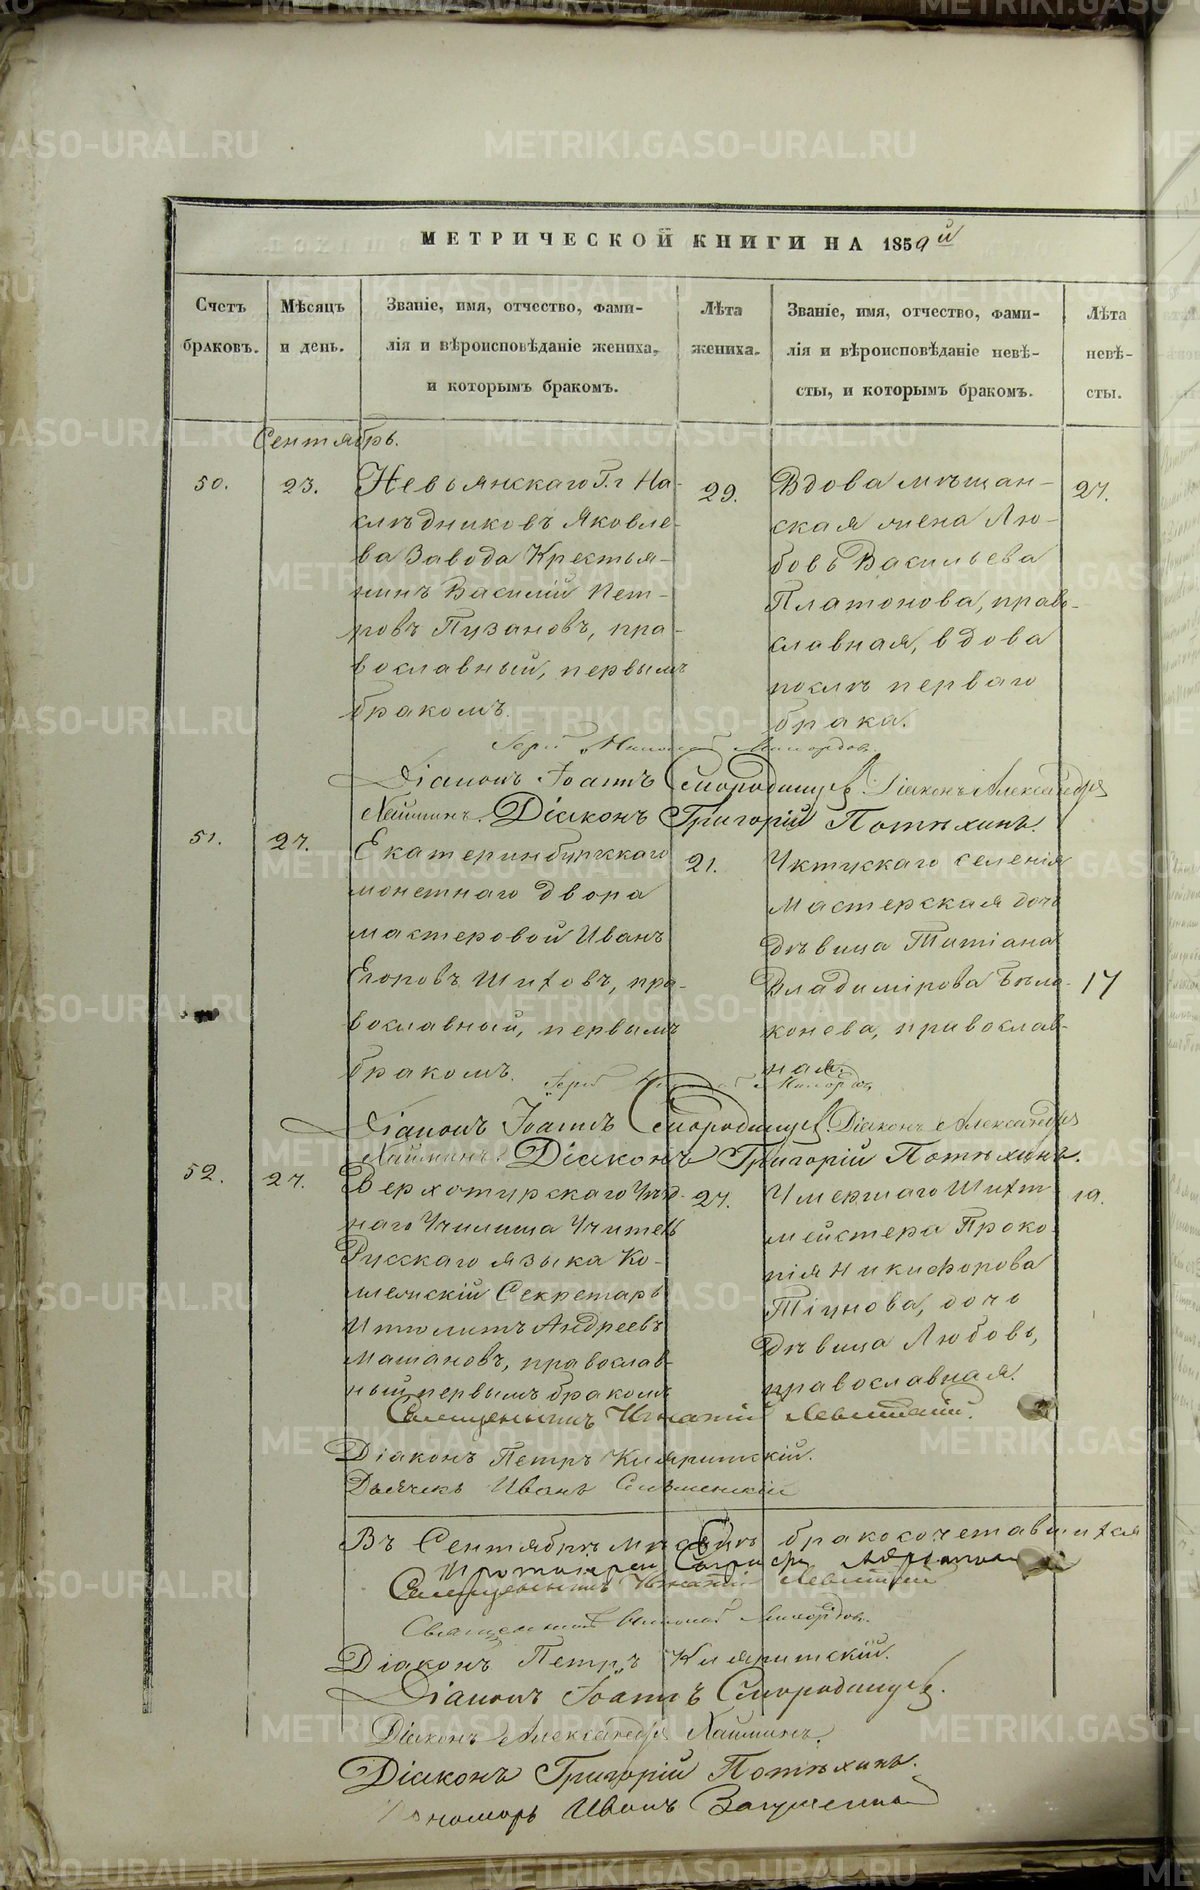 МЕТРИЧЕСКОЙ КНИГИ НА 1859й
Счетъ браковъ.
Мѣсяцъ и день.
Званіе, имя, отчество, фами-
лія и вѣроисповѣданіе жениха,
и которымъ бракомъ.
Лѣта жениха.
Званіе, имя, отчество, фами-
лія и вѣроисповѣданіе невѣ-
сты, и которымъ бракомъ.
Лѣта невѣ-
сты.
Сентябрь.
50.
23.
Невьянскаго Г. г На-
слѣдниковъ Яковле-
ва Завода Крестья-
нинъ Василій Пет-
ровъ Пузановъ, пра-
вославный, первымъ
бракомъ.
29.
Вдова мѣщан-
ская жена Лю-
бовь Васильева
Платонова, право-
славная, вдова
послѣ перваго
брака.
27.
Іерей Николай
Діаконъ Іоаннъ Смородинцевъ. Діаконъ Александръ
Наиминъ. Діаконъ Григорій Потѣхинъ.
51.
27.
Екатеринбургскаго
монетнаго двора
мастеровой Иванъ
Егоровъ Шиховъ, пра-
вославный, первымъ
бракомъ.
21.
Уктусскаго селенія
Мастерская дочь
дѣвица Татіана
Владимірова Бѣло-
конева, православ-
ная.
17
Іерей
Діаконъ Іоаннъ Смородинцевъ. Діаконъ Александръ
Наиминъ. Діаконъ Григорій Потѣхинъ.
52.
27.
Верхотурскаго Уѣзд-
наго Училища Учитель
Русскаго языка Ко-
лежскій Секретарь
Ипполитъ Андреевъ
Машановъ, православ-
ный, первымъ бракомъ
27.
Умершаго Шихт-
мейстера Проко-
пія Никифорова
Тіунова, дочь
дѣвица Любовь,
православная.
19.
Священникъ Игнатій Левитскій.
Діаконъ Петръ
Дьячекъ Иванъ
Въ Сентябрѣ мѣсяцѣ бракосочетавшихся
Протоіерей
Священникъ Игнатій Левитскій
Священникъ Николай
Діаконъ Петръ
Діаконъ Іоаннъ Смородинцевъ.
Діаконъ Александръ Наиминъ.
Діаконъ Григорій Потѣхинъ.
Пономарь Иванъ
METRIKI.GASO-URAL.RU